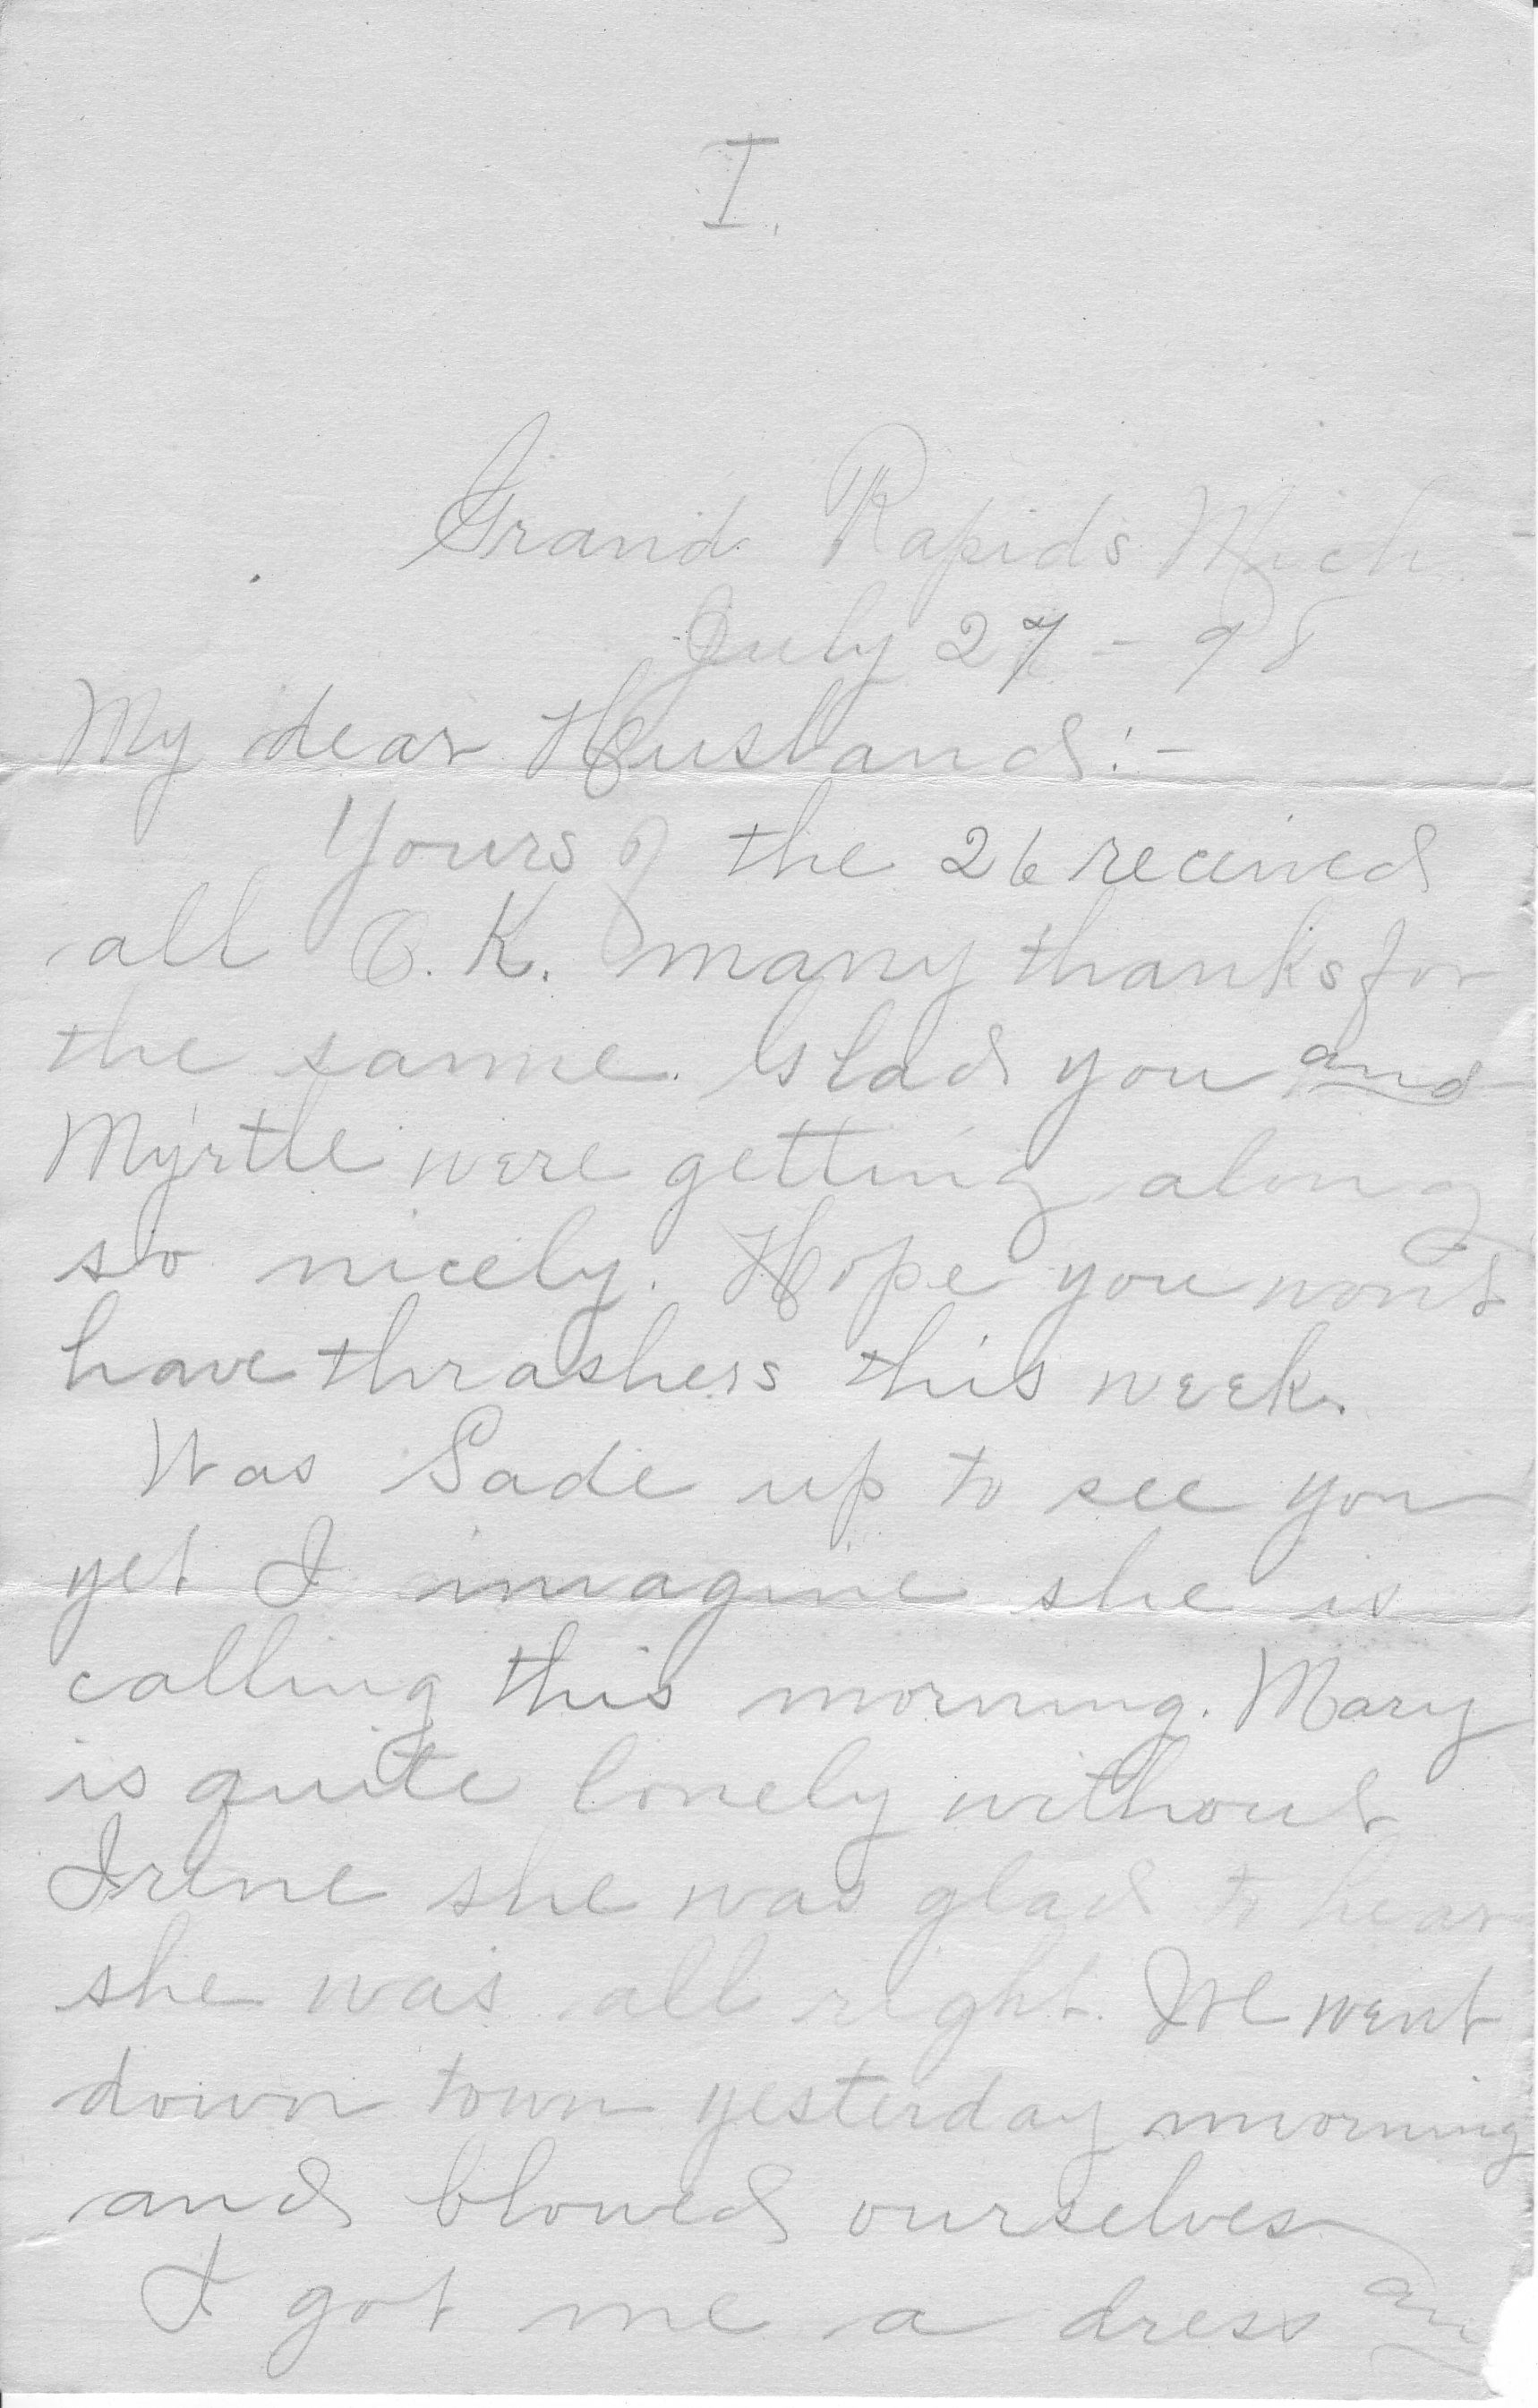 I.
Grand Rapids Mich.
July 27 - 98
My dear Husband:-
Yours of the 26 received
all O.K. many thanks for
the same. Glad you and
Myrtle were getting along
so nicely. Hope you wont
have thrashers this week.
Was Sade up to see you
yet I imagine she is
calling this morning. Mary
is quite lonely without
Irene she was glad to hear
she was all right. We went
down town yesterday morning
and blowed ourselves
I got me a dress